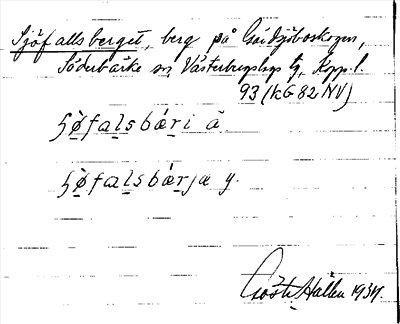 Sjöfallsberget, berg på Gåsjöboskogen,
Söderbärke sn, Västerbergslags tg, Kopp. l.
93 (kG 82 NV)
ʃö̀falsbæ̀ri ä
ʃö̀falsbæ̀rjæ y.
Gösta Hallen 1937.